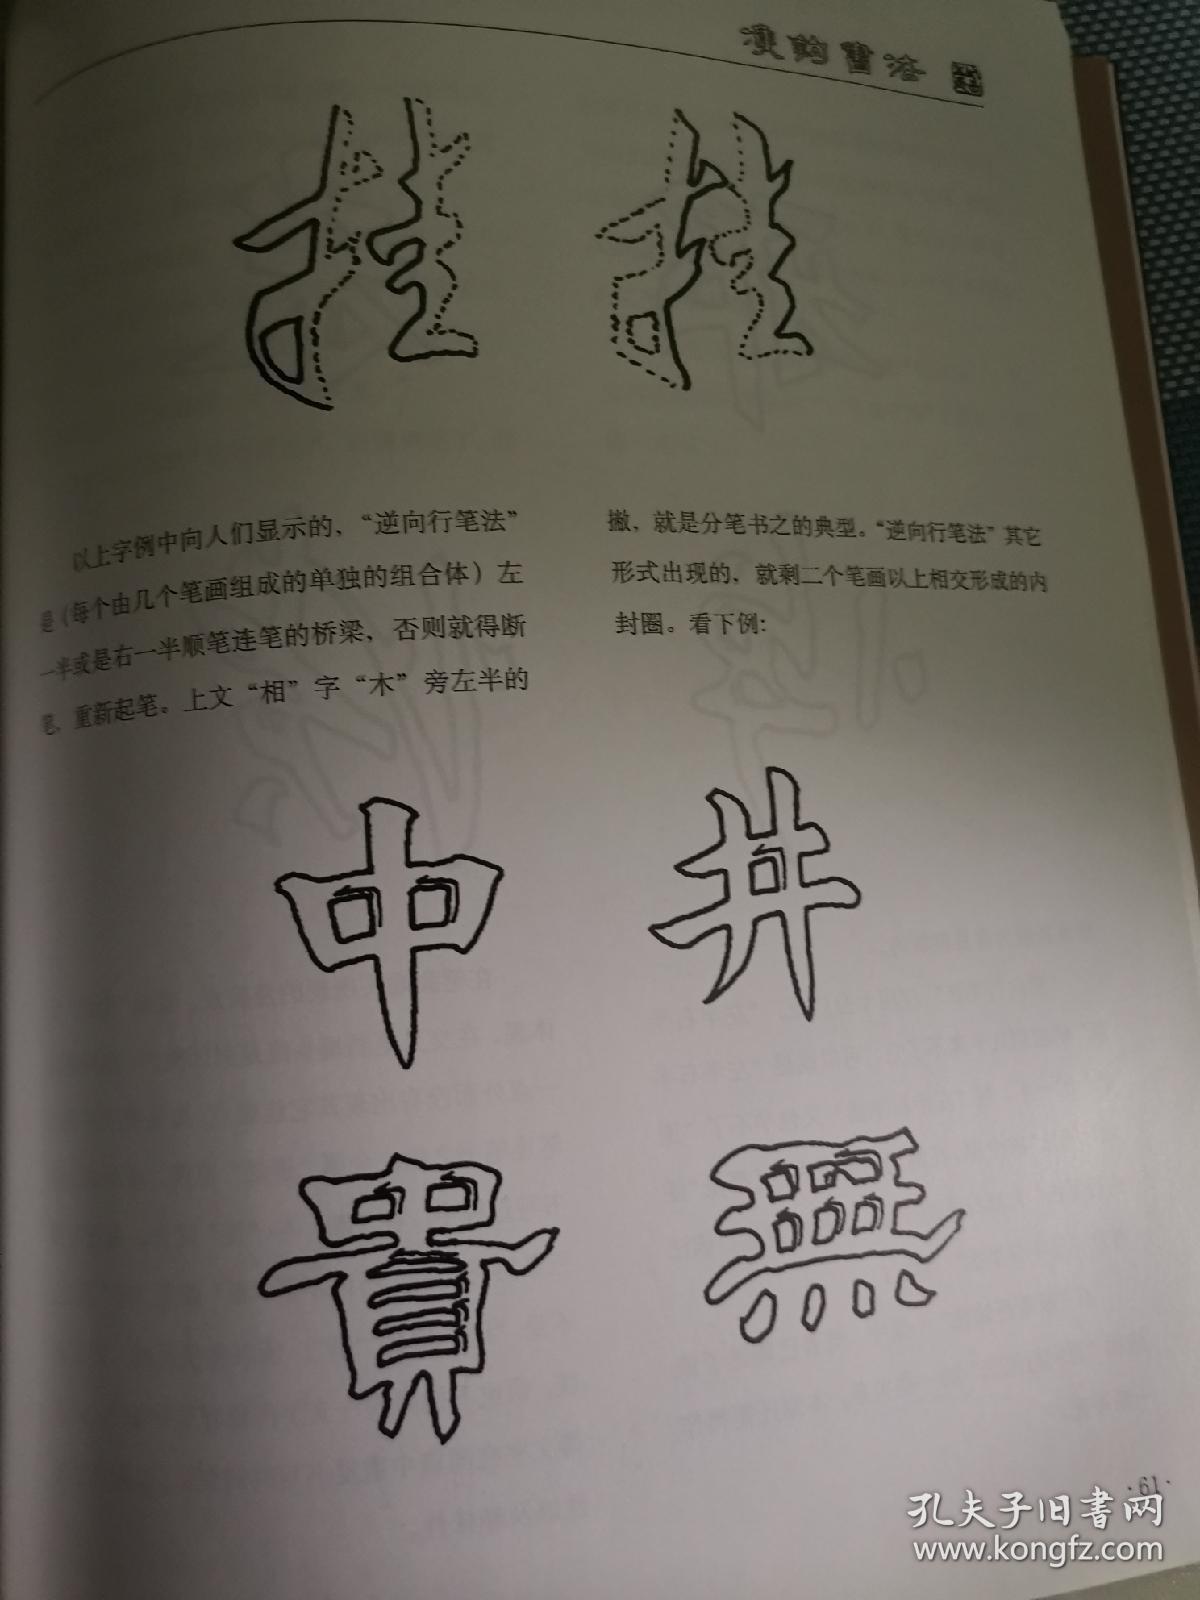 漫鈎書法
以上字例中向人们显示的，“逆向行笔法”
是（每个由几个笔画组成的单独的组合体）左
一半或是右一半顺笔连笔的桥梁，否则就得断
笔，重新起笔。上文“相”字“木”旁左半的
撇，就是分笔书之的典型。“逆向行笔法”其它
形式出现的，就剩二个笔画以上相交形成的内
封圈。看下例：
中
井
貴
無
·61·
孔夫子旧书网
www.kongfz.com